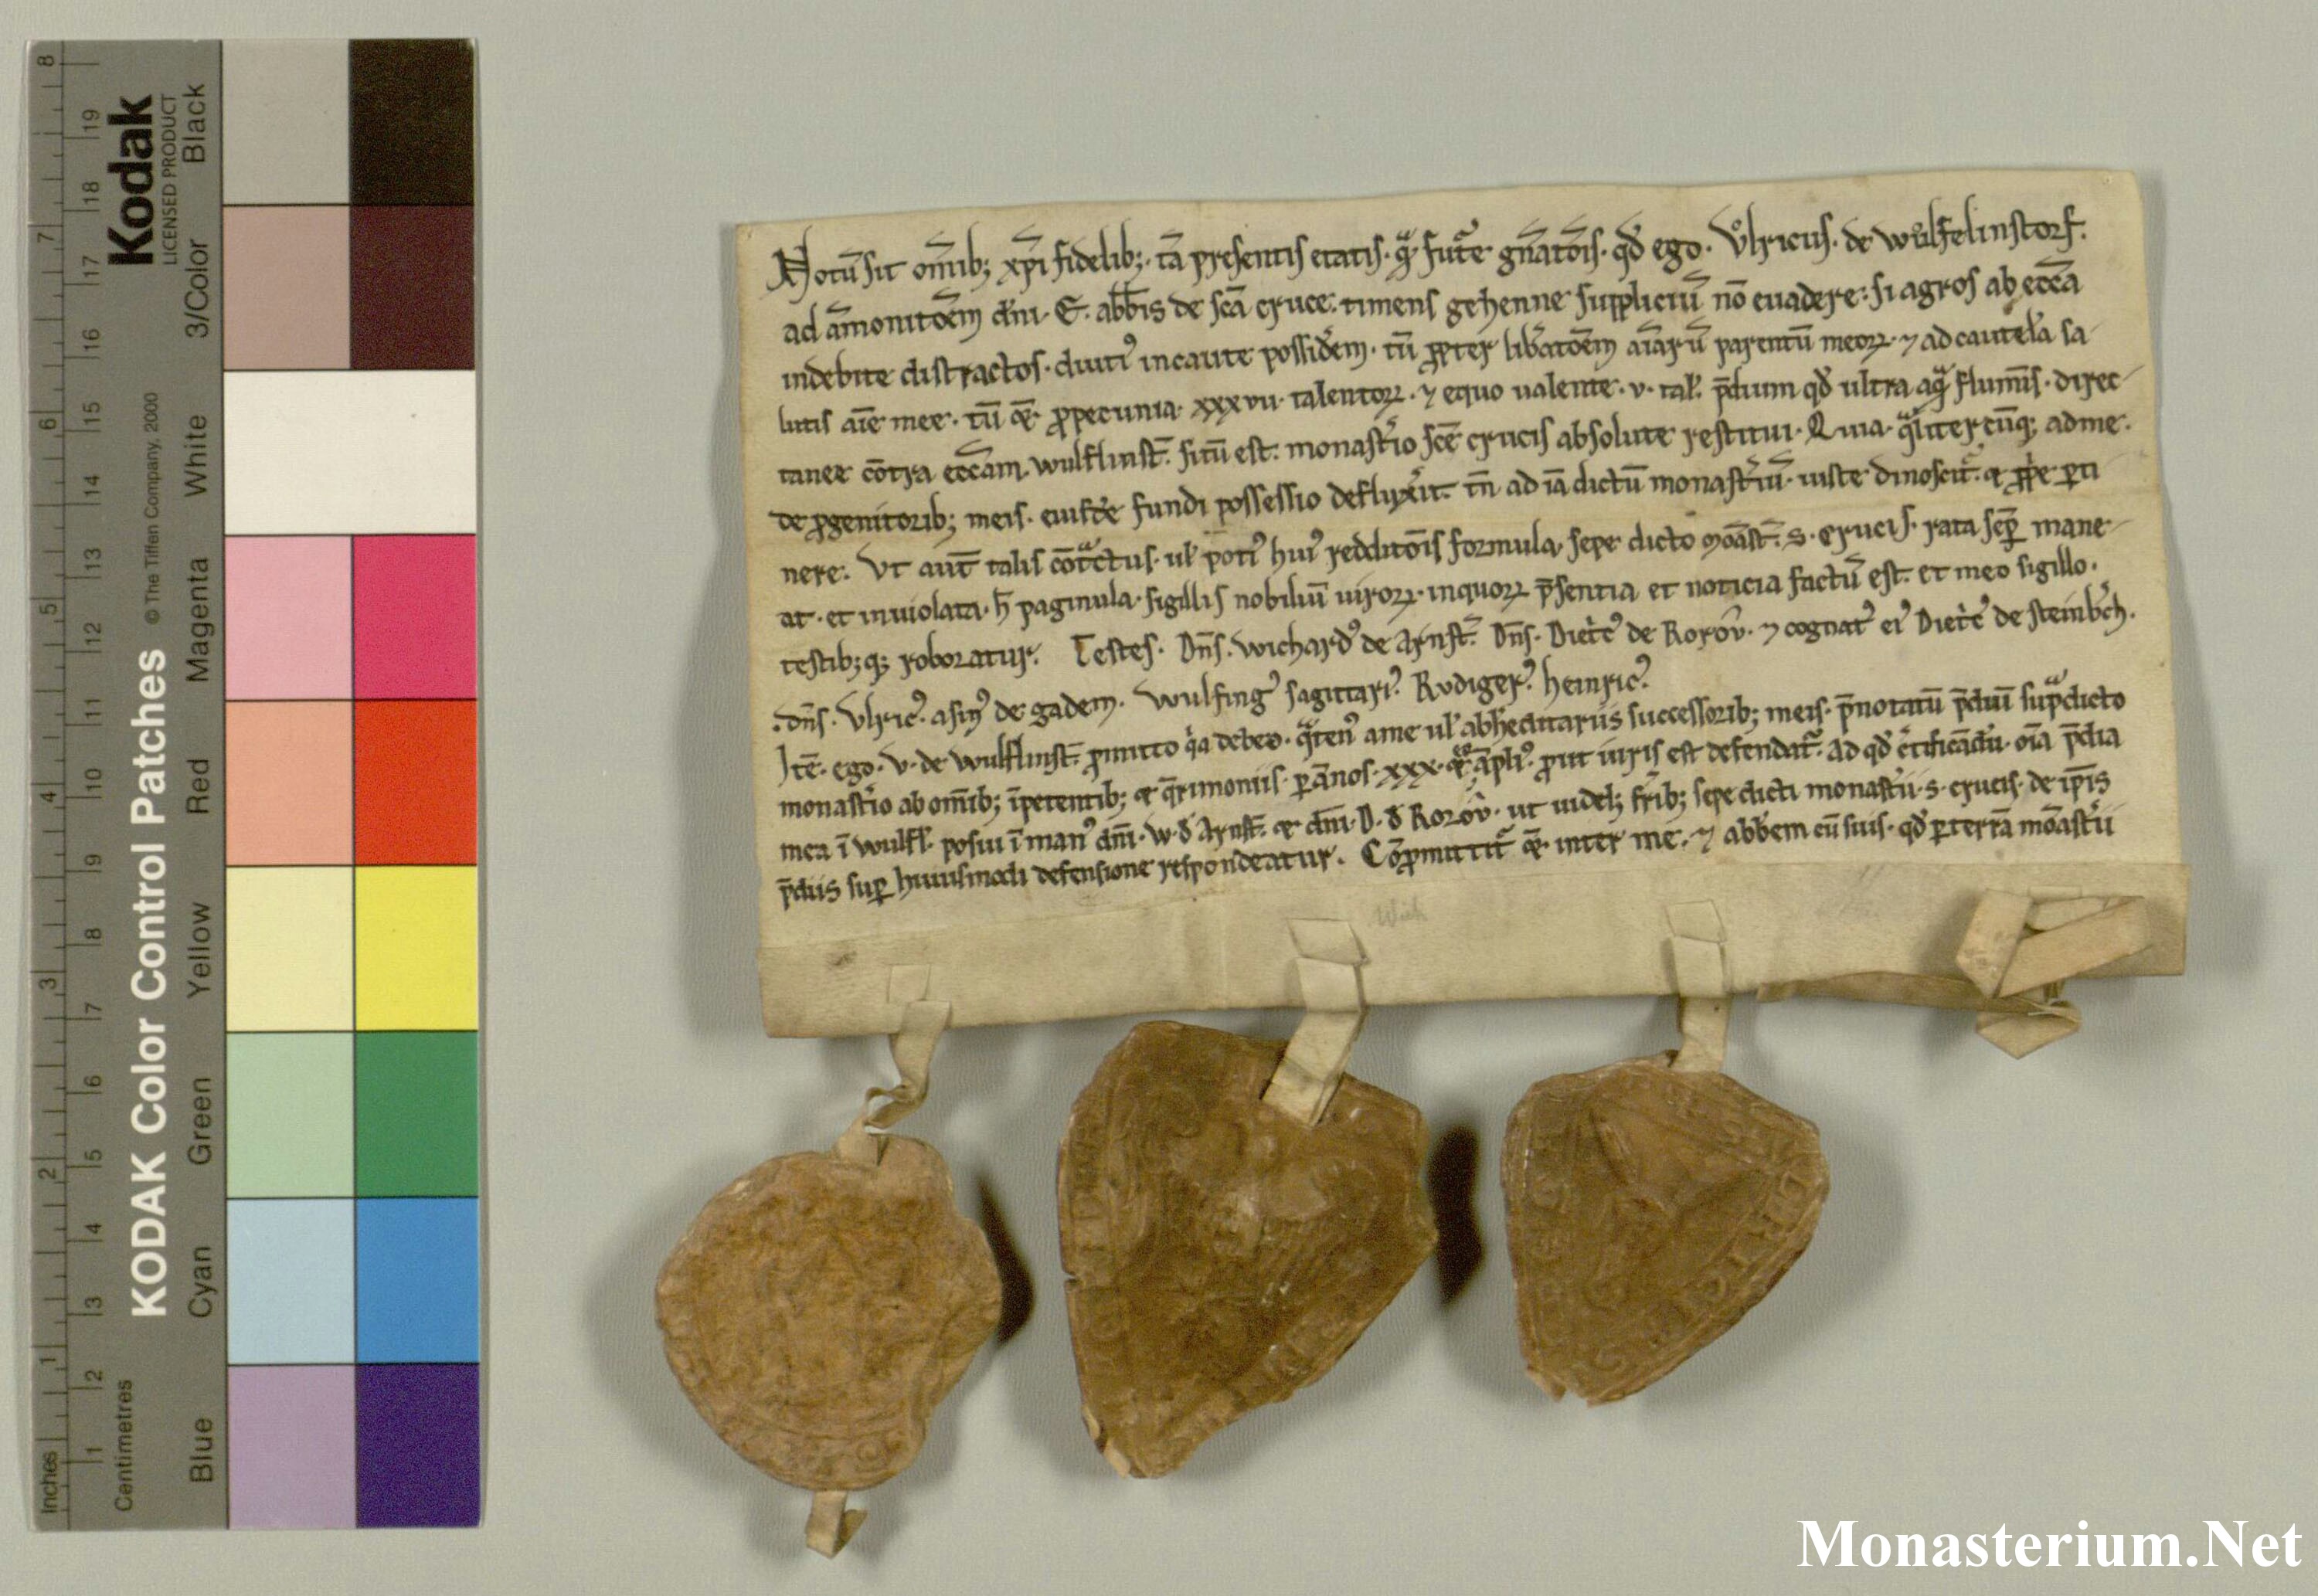 Kodak
LICENSED PRODUCT
KODAK Color Control Patches
© The Tiffen Company, 2000
Black
3/Color
White
Magenta
Red
Yellow
Green
Cyan
Blue
Inches
1 2 3 4 5 6 7 8
Centimetres
1 2 3 4 5 6 7 8 9 10 11 12 13 14 15 16 17 18 19
Notū sit om̄ib; xp̄i fidelib;. tā presentis etatis. qͣ futͬe gn̄atōis. qđ ego. Vͦlricus. de wͦlfelinstorf.
ad āmonitōem dn̄i. E. abb̄is de sc̄a cruce. timens gehenne suppliciū nō euadere: si agros ab ecc̄a
indebite distractos. diutiꝰ incaute possidem. tū ꝓpter lib̄atōem aīarū parentū meoꝝ. ⁊ ad cautelā sa
lutis aīe mee. tū ꝙ̄ ꝓpecunia. xxxvii. talentoꝝ. ⁊ equo ualente. v. tal̄. p̄dium qđ ultra aqͣ flumīs. direc-
tanee cōtra ecc̄am wulflinst̄. sitū est. monast̓io sc̄e crucis absolute restitui. Quia qͣliter cūq; ad me.
de ꝓgenitorib; meis. eiusdē fundi possessio defluxit. tn̄ ad iā dictū monast̓iū. iuste dinoscit̄. ⁊ ꝓpͥe ꝑti
nere. Vt aut̄ talis cōtͣctus. ul̄ potiꝰ huiꝰ redditōis formula. sepe dicto mōast̄. S. crucis. rata semꝑ mane-
at. et inuiolata. h̄ paginula. sigillis nobiliū uiroꝝ. inquoꝝ p̄sentia et noticia factū est. et meo sigillo.
testib;q; roboratur. Testes. Dn̄s. wichardꝰ de Arnst̄. Dn̄s. Dietͥcꝰ de Rorov̄. ⁊ cognatꝰ eiꝰ Dietͥcꝰ de steinb̄ch.
dn̄s. Vlricꝰ. asinꝰ de gadem. Wulfingꝰ sagittariꝰ. Rvdigerꝰ. heinricꝰ.
Itē. ego. V. de wulflinst̄. ꝓmitto qͥa debeo. qͣtenꝰ ame ul̄ abh̄editariis successorib; meis. p̄notatū p̄diū supͣdicto
monast̓io ab om̄ib; īpetentib; ⁊ q̄rimoniis. ꝑ ānos. xxx. āpliꝰ. ꝓut iuris est defendat̄. Ad qđ c̄tificādū. oīa p̄dia
mea ī wulfl̄. posui ī manꝰ dn̄i. W. đ Arnst̄. ⁊ dn̄i. D. đ Rorov̄. ut uidel; fr̄ib; sepe dicti monast̓ii. s. crucis. de ip̄is
p̄diis suꝑ huiusmodi defensione respondeatur. Cōꝓmittit̄ inter me. ⁊ abb̄em cū suis. qđ ꝑ terrā mōast̓ii
Monasterium.Net